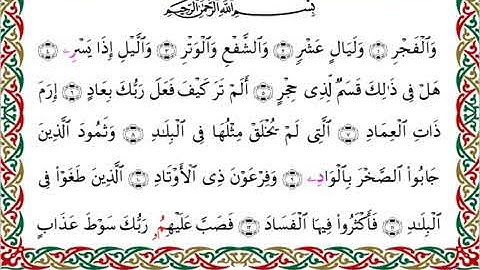 بِسْمِ ٱللَّهِ ٱلرَّحْمَٰنِ ٱلرَّحِيمِ
وَٱلْفَجْرِ ۝١ وَلَيَالٍ عَشْرٍ ۝٢ وَٱلشَّفْعِ وَٱلْوَتْرِ ۝٣ وَٱلَّيْلِ إِذَا يَسْرِۦ ۝٤
هَلْ فِى ذَٰلِكَ قَسَمٌ لِّذِى حِجْرٍ ۝٥ أَلَمْ تَرَ كَيْفَ فَعَلَ رَبُّكَ بِعَادٍ ۝٦ إِرَمَ
ذَاتِ ٱلْعِمَادِ ۝٧ ٱلَّتِى لَمْ يُخْلَقْ مِثْلُهَا فِى ٱلْبِلَٰدِ ۝٨ وَثَمُودَ ٱلَّذِينَ
جَابُوا۟ ٱلصَّخْرَ بِٱلْوَادِۦ ۝٩ وَفِرْعَوْنَ ذِى ٱلْأَوْتَادِ ۝١٠ ٱلَّذِينَ طَغَوْا۟ فِى
ٱلْبِلَٰدِ ۝١١ فَأَكْثَرُوا۟ فِيهَا ٱلْفَسَادَ ۝١٢ فَصَبَّ عَلَيْهِمُۥ رَبُّكَ سَوْطَ عَذَابٍ